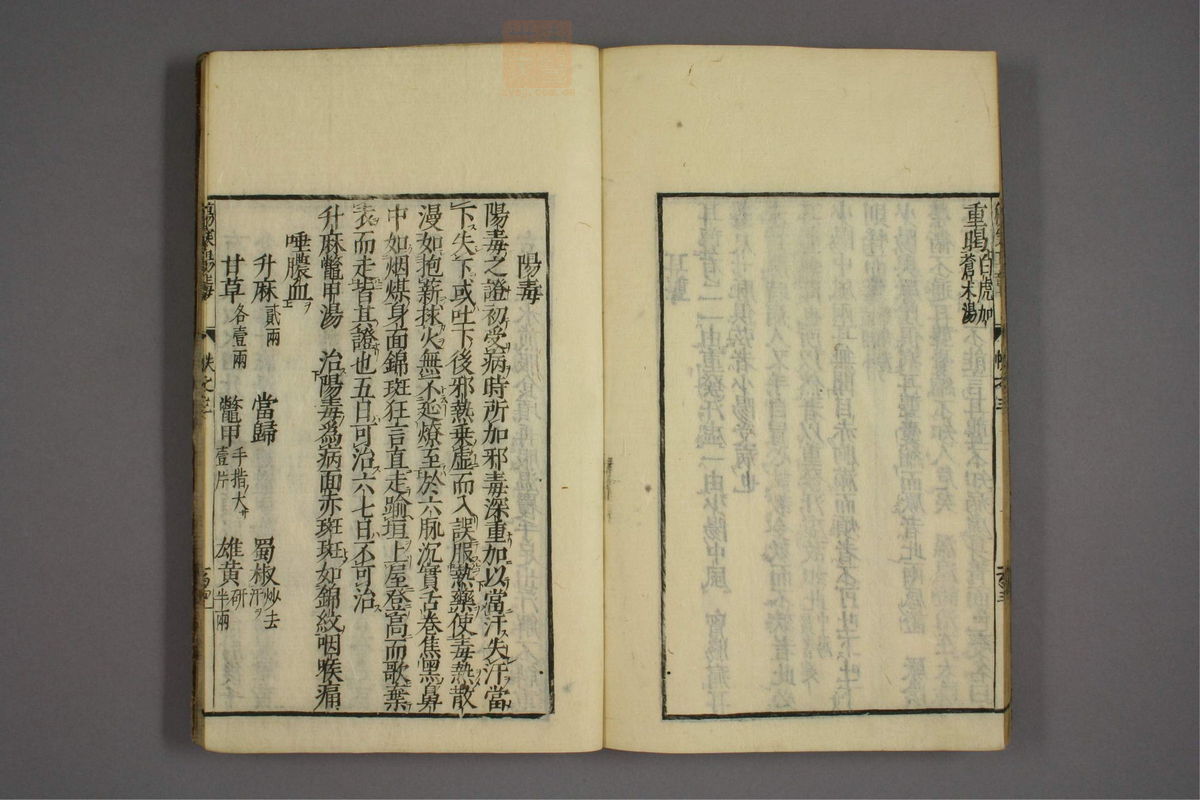 重暍 白虎加
蒼朮湯
陽毒
陽毒之證初受病時所加邪毒深重加以當汗失汗當
下失下或吐下後邪熱乗虚而入誤服熱藥使毒熱散
漫如抱薪救火無不延燎至於六脉沉實舌卷焦黑鼻
中如烟煤身面錦斑狂言直走踰垣上屋登高而歌棄
衣而走皆其證也五日可治六七日不可治
升麻鼈甲湯 治陽毒爲病面赤斑斑如錦紋咽喉痛
唾膿血
升麻貳兩 當歸 蜀椒炒去汗
甘草各壹兩 鼈甲手指大壹片 雄黄研半兩